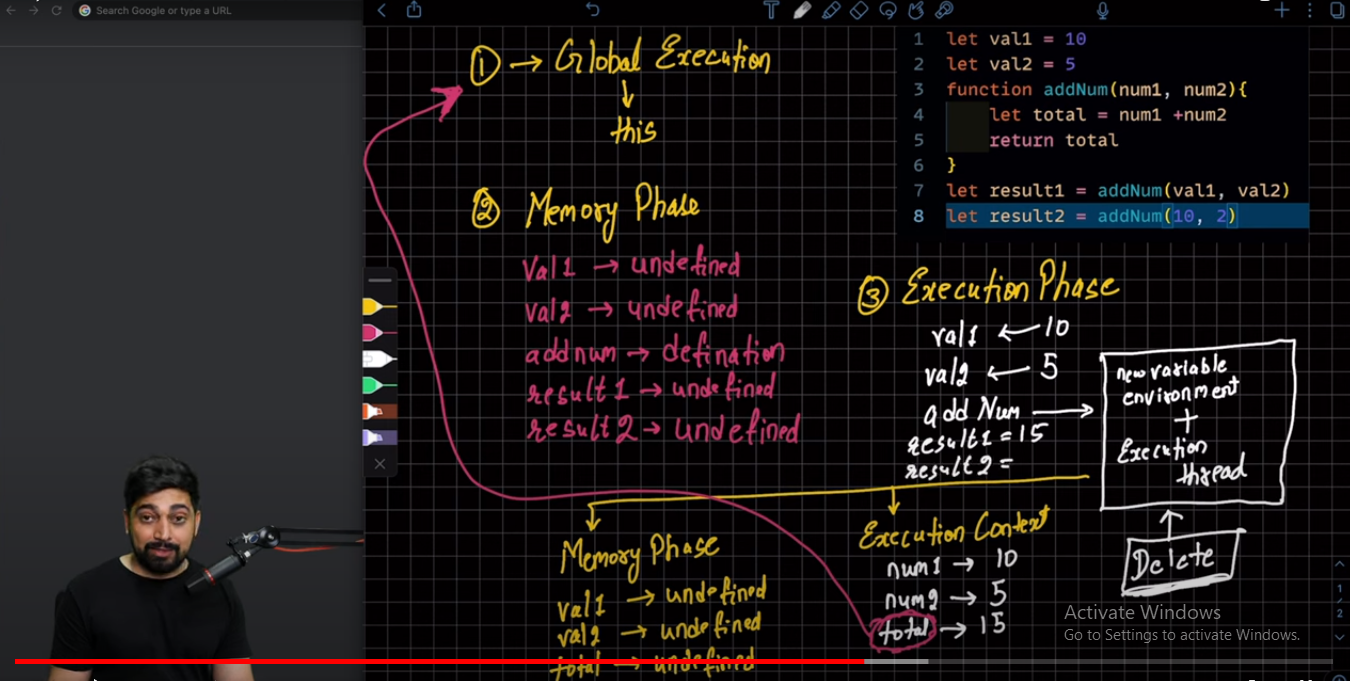 Search Google or type a URL
① → Global Execution
↓
this
② Memory Phase
val1 → undefined
val2 → undefined
addnum → defination
result1 → undefined
result2 → undefined
1 let val1 = 10
2 let val2 = 5
3 function addNum(num1, num2){
4 let total = num1 +num2
5 return total
6 }
7 let result1 = addNum(val1, val2)
8 let result2 = addNum(10, 2)
③ Execution Phase
val1 ← 10
val2 ← 5
add Num →
result1 = 15
result2 =
new variable
environment
+
Execution
thread
Delete
Memory Phase
val1 → undefined
val2 → undefined
total → undefined
Execution Context
num1 → 10
num2 → 5
total → 15
Activate Windows
Go to Settings to activate Windows.
1
2